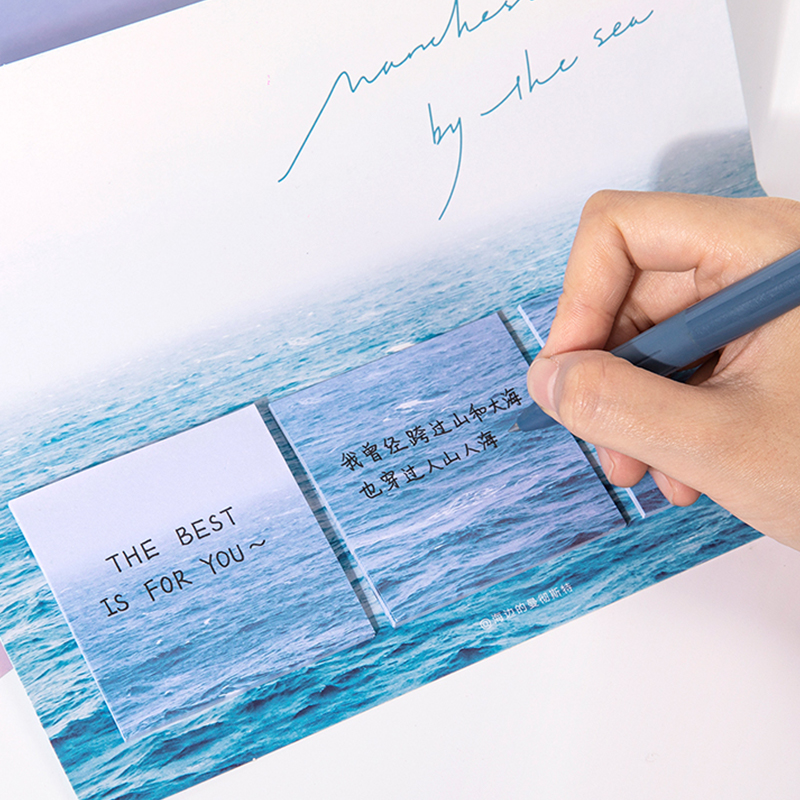 by the sea
THE BEST
IS FOR YOU~
我曾经跨过山和大海
也穿过人山人海
@海边的曼彻斯特